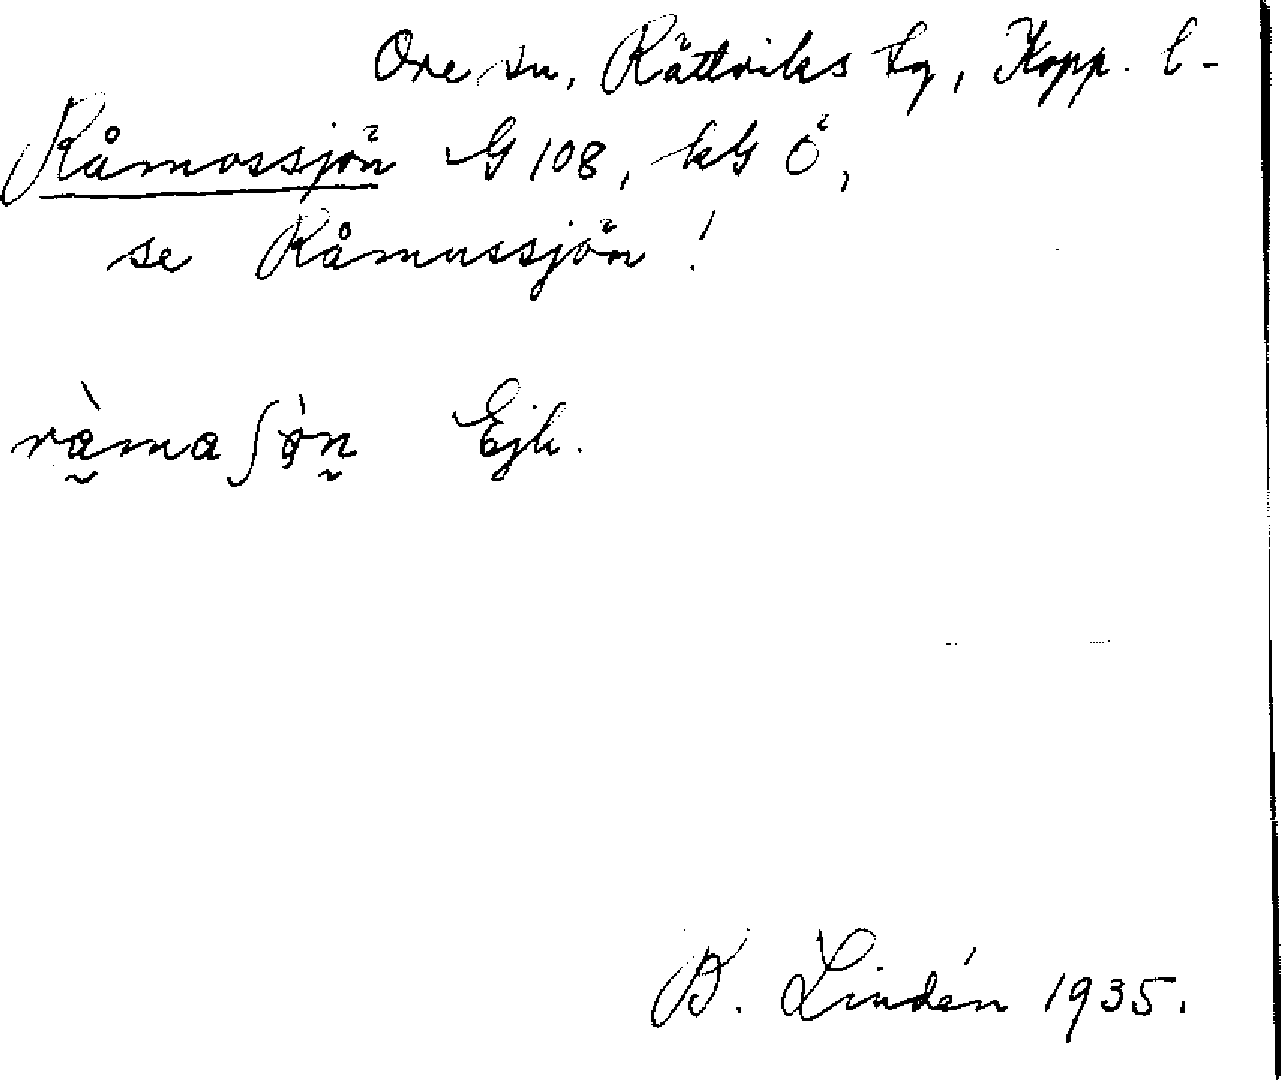 Ore sn, Rättviks tg, Kopp. l-
Råmossjön G 108, kG Ö,
se Råmussjön !
ràma ʃön Ejk.
B. Lindén 1935.